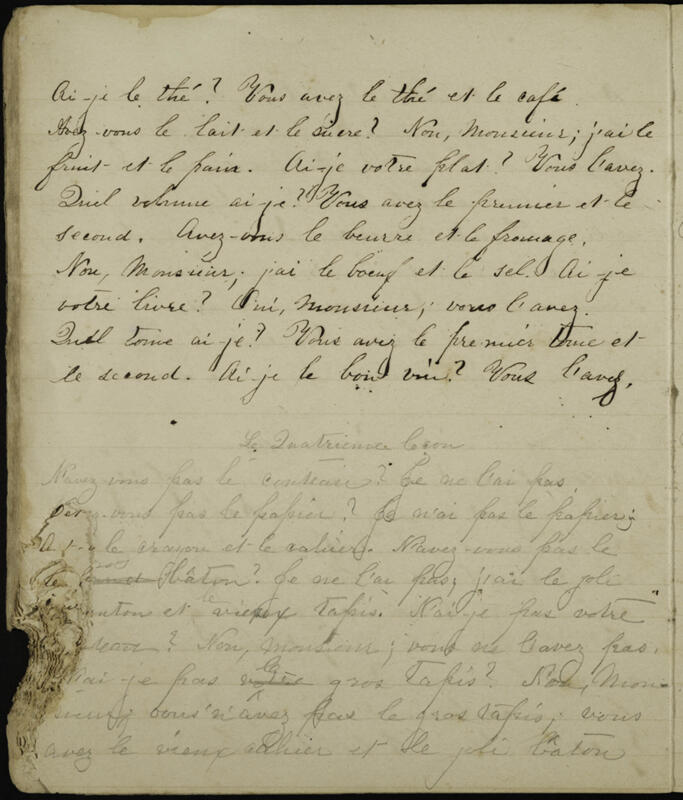 Ai-je le thé? Vous avez le thé et le café
Avez-vous le lait et le sucre? Non, Monsieur; j'ai le
fruit et le pain. Ai-je votre plat? Vous l'avez.
Quel volume ai-je? Vous avez le premier et le
second. Avez-vous le beurre et le fromage.
Non, Monsieur; j'ai le bœuf et le sel. Ai-je
votre livre? Oui, Monsieur; vous l'avez.
Quel tome ai-je? Vous avez le premier tome et
le second. Ai-je le bon vin? Vous l'avez.
Le Quatrieme leçon
N'avez vous pas le couteau? Je ne l'ai pas
vous pas le papier? Je n'ai pas le papier;
le crayon et le cahier. N'avez-vous pas le
bâton? Je ne l'ai pas; j'ai le joli
et le vieux tapis. N'ai-je pas votre
? Non, Monsieur; vous ne l'avez pas.
N'ai-je pas le gros tapis? Non, Mon-
sieur; vous n'avez pas le gros tapis; vous
avez le vieux cahier et le joli bâton